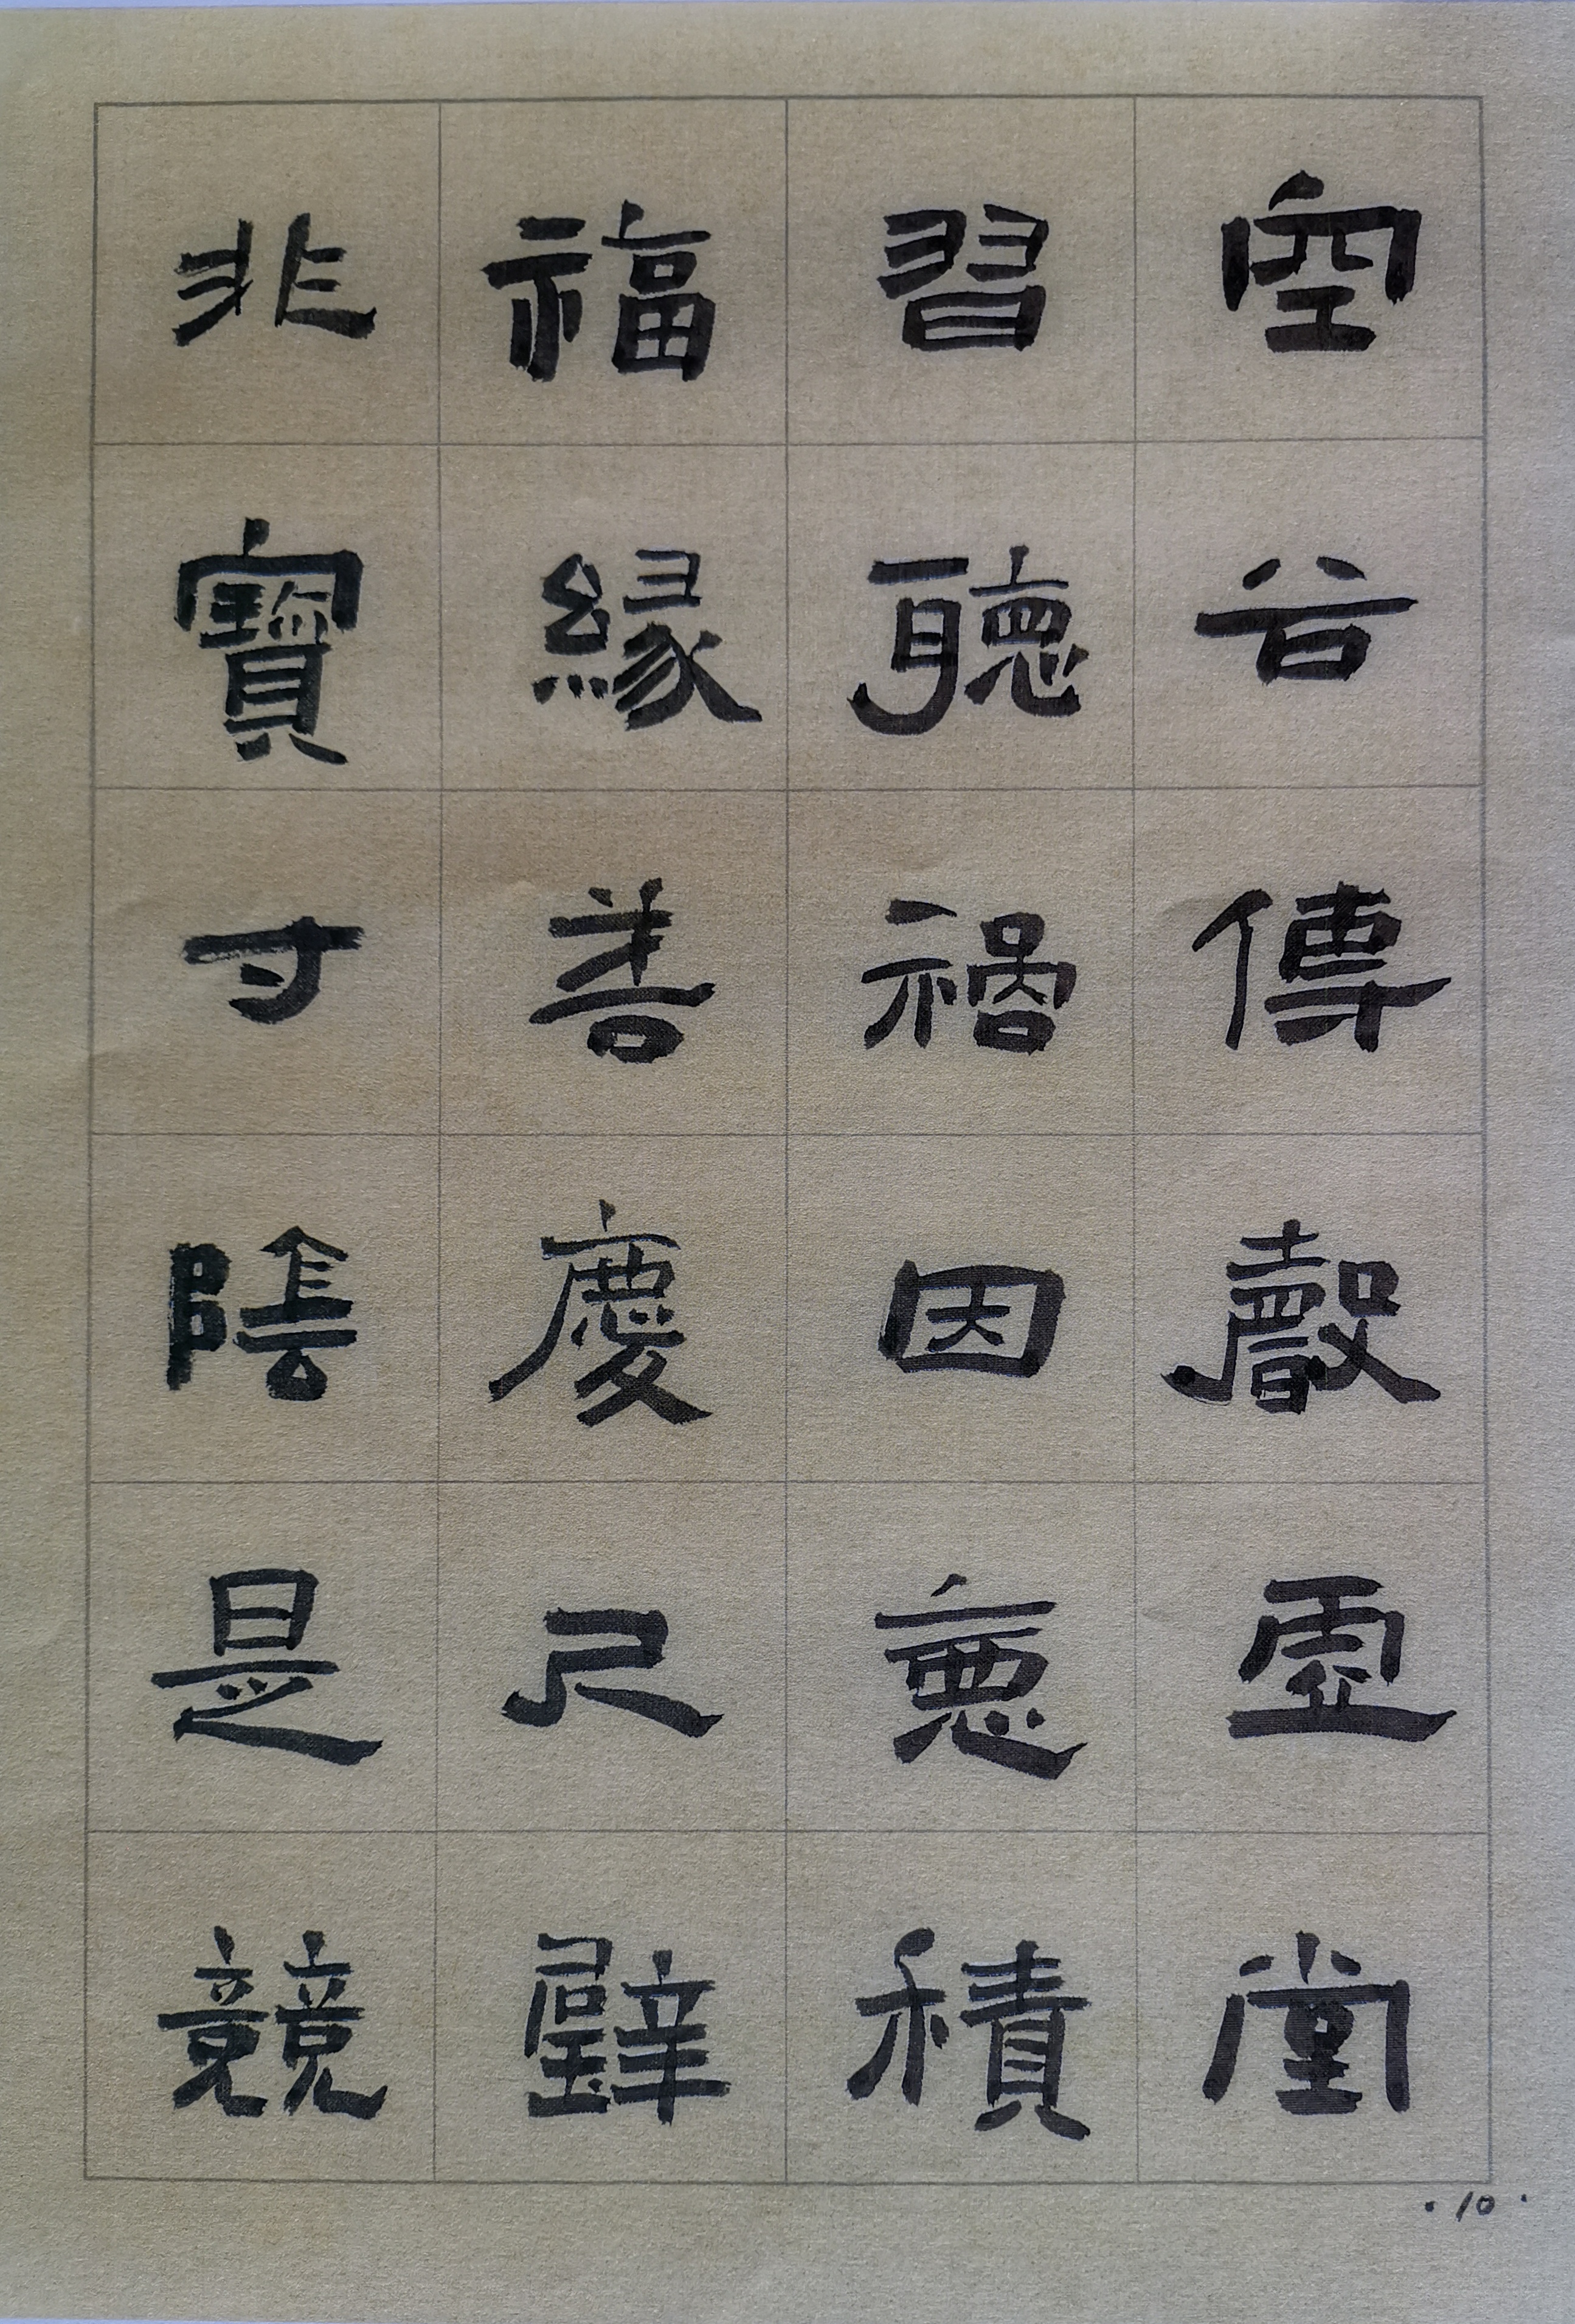 空谷傳聲虛堂
習聽禍因惡積
福緣善慶尺璧
非寶寸陰是競
·10·